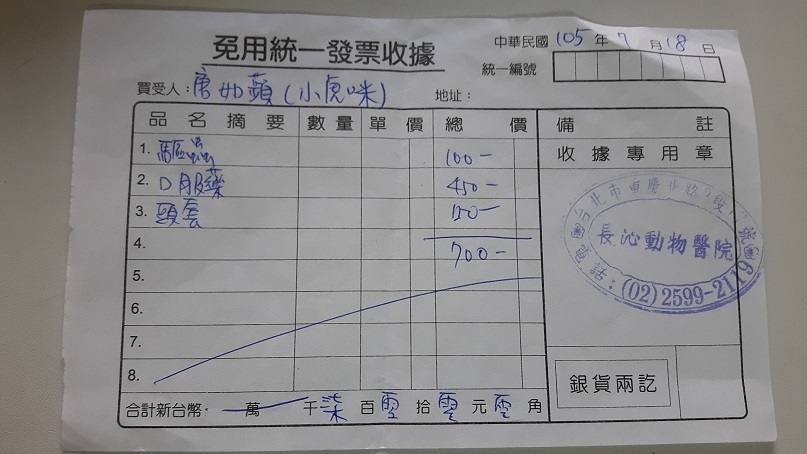 免用統一發票收據
中華民國 105 年 7 月 18 日
統一編號
買受人：唐如蘋(小虎咪) 地址：
品名摘要 數量 單價 總價 備註
1. 驅蟲 100-
2. 口服藥 450-
3. 頭套 150-
4. 700-
5.
6.
7.
8.
收據專用章
台北市重慶北路
長沁動物醫院
電話：(02)2599-2119
銀貨兩訖
合計新台幣： 萬 千 柒 百 零 拾 零 元 零 角